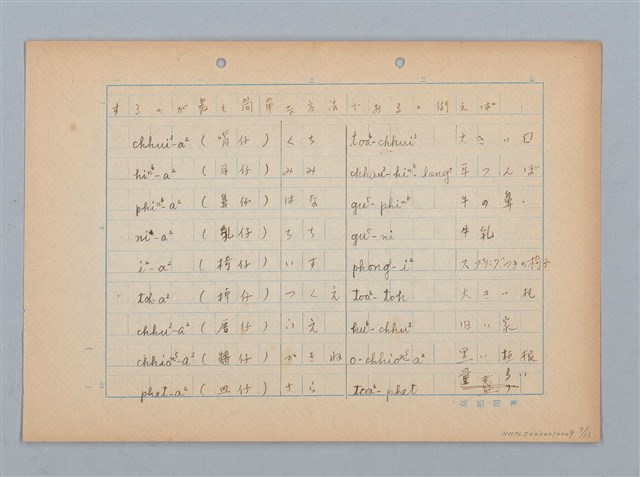 するのが最も簡単な方法である。例えば
chhui²-a² (嘴仔) くち toa⁶-chhui² 大きい口
hiⁿ⁶-a² (耳仔) みみ chhau²-hiⁿ⁶-lang⁵ 耳つんぼ
phiⁿ⁶-a² (鼻仔) はな gu⁵-phiⁿ⁶ 牛の鼻
ni-a² (乳仔) ちち gu⁵-ni 牛乳
i²-a² (椅仔) いす phong-i² スプリングつきの椅子
toh-a² (棹仔) つくえ toa⁶-toh 大きい机
chhu³-a² (厝仔) いえ ku⁶-chhu³ 旧い家
chhioⁿ⁵-a² (牆仔) かきね o-chhioⁿ⁵-a² 黒い垣根
phet-a² (皿仔) さら toa⁶-phet
NMTL20200010009